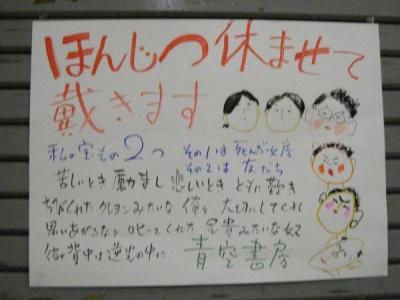 ほんじつ休ませて
戴きます
私の宝もの2つ その1は死んだ女房
その2は友だち
苦しいとき励まし悲しいときともに歎き
ちびくれたクレヨンみたいな俺を大切にしてくれ
思いあがるなと叱ってくれた兄貴みたいな奴
彼の背中は逆光の中に
青空書房